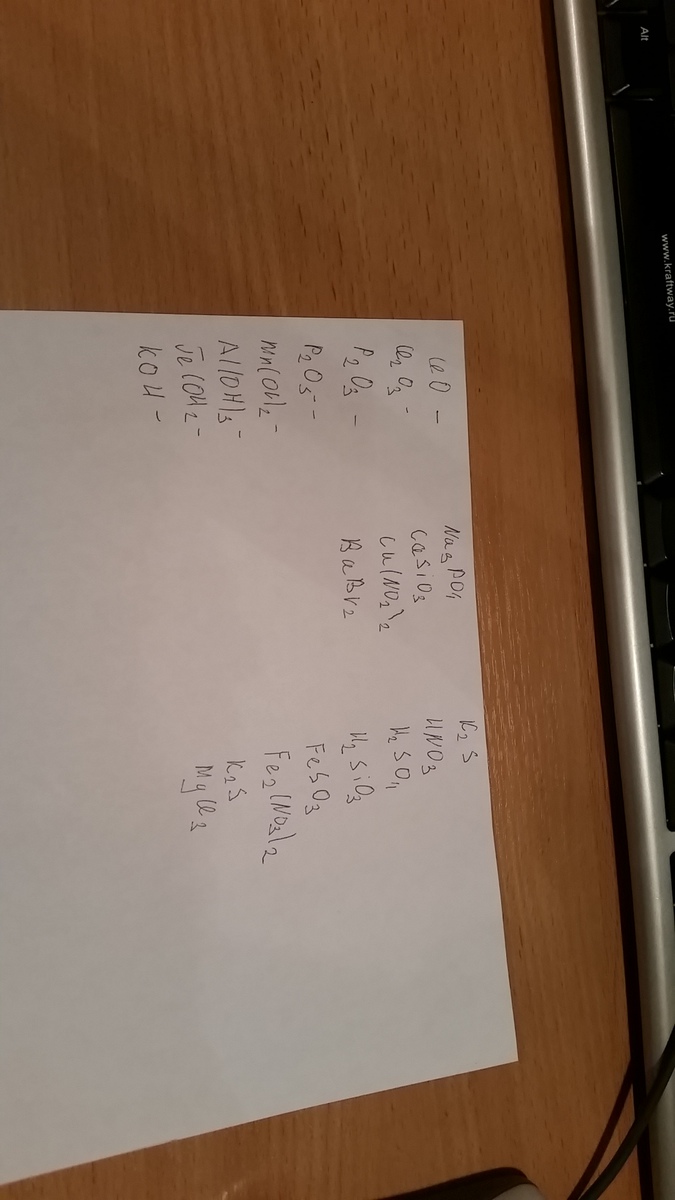 Alt
www.kraftway.ru
ClO -
Cl2O3 -
P2O3 -
P2O5 --
Mn(OH)2 -
Al(OH)3 -
Fe(OH2 -
KOH -
Na3PO4
CaSiO3
Cu(NO2)2
BaBr2
K2S
HNO3
H2SO4
H2SiO3
FeSO3
Fe2(NO3)2
K2S
MgCl3